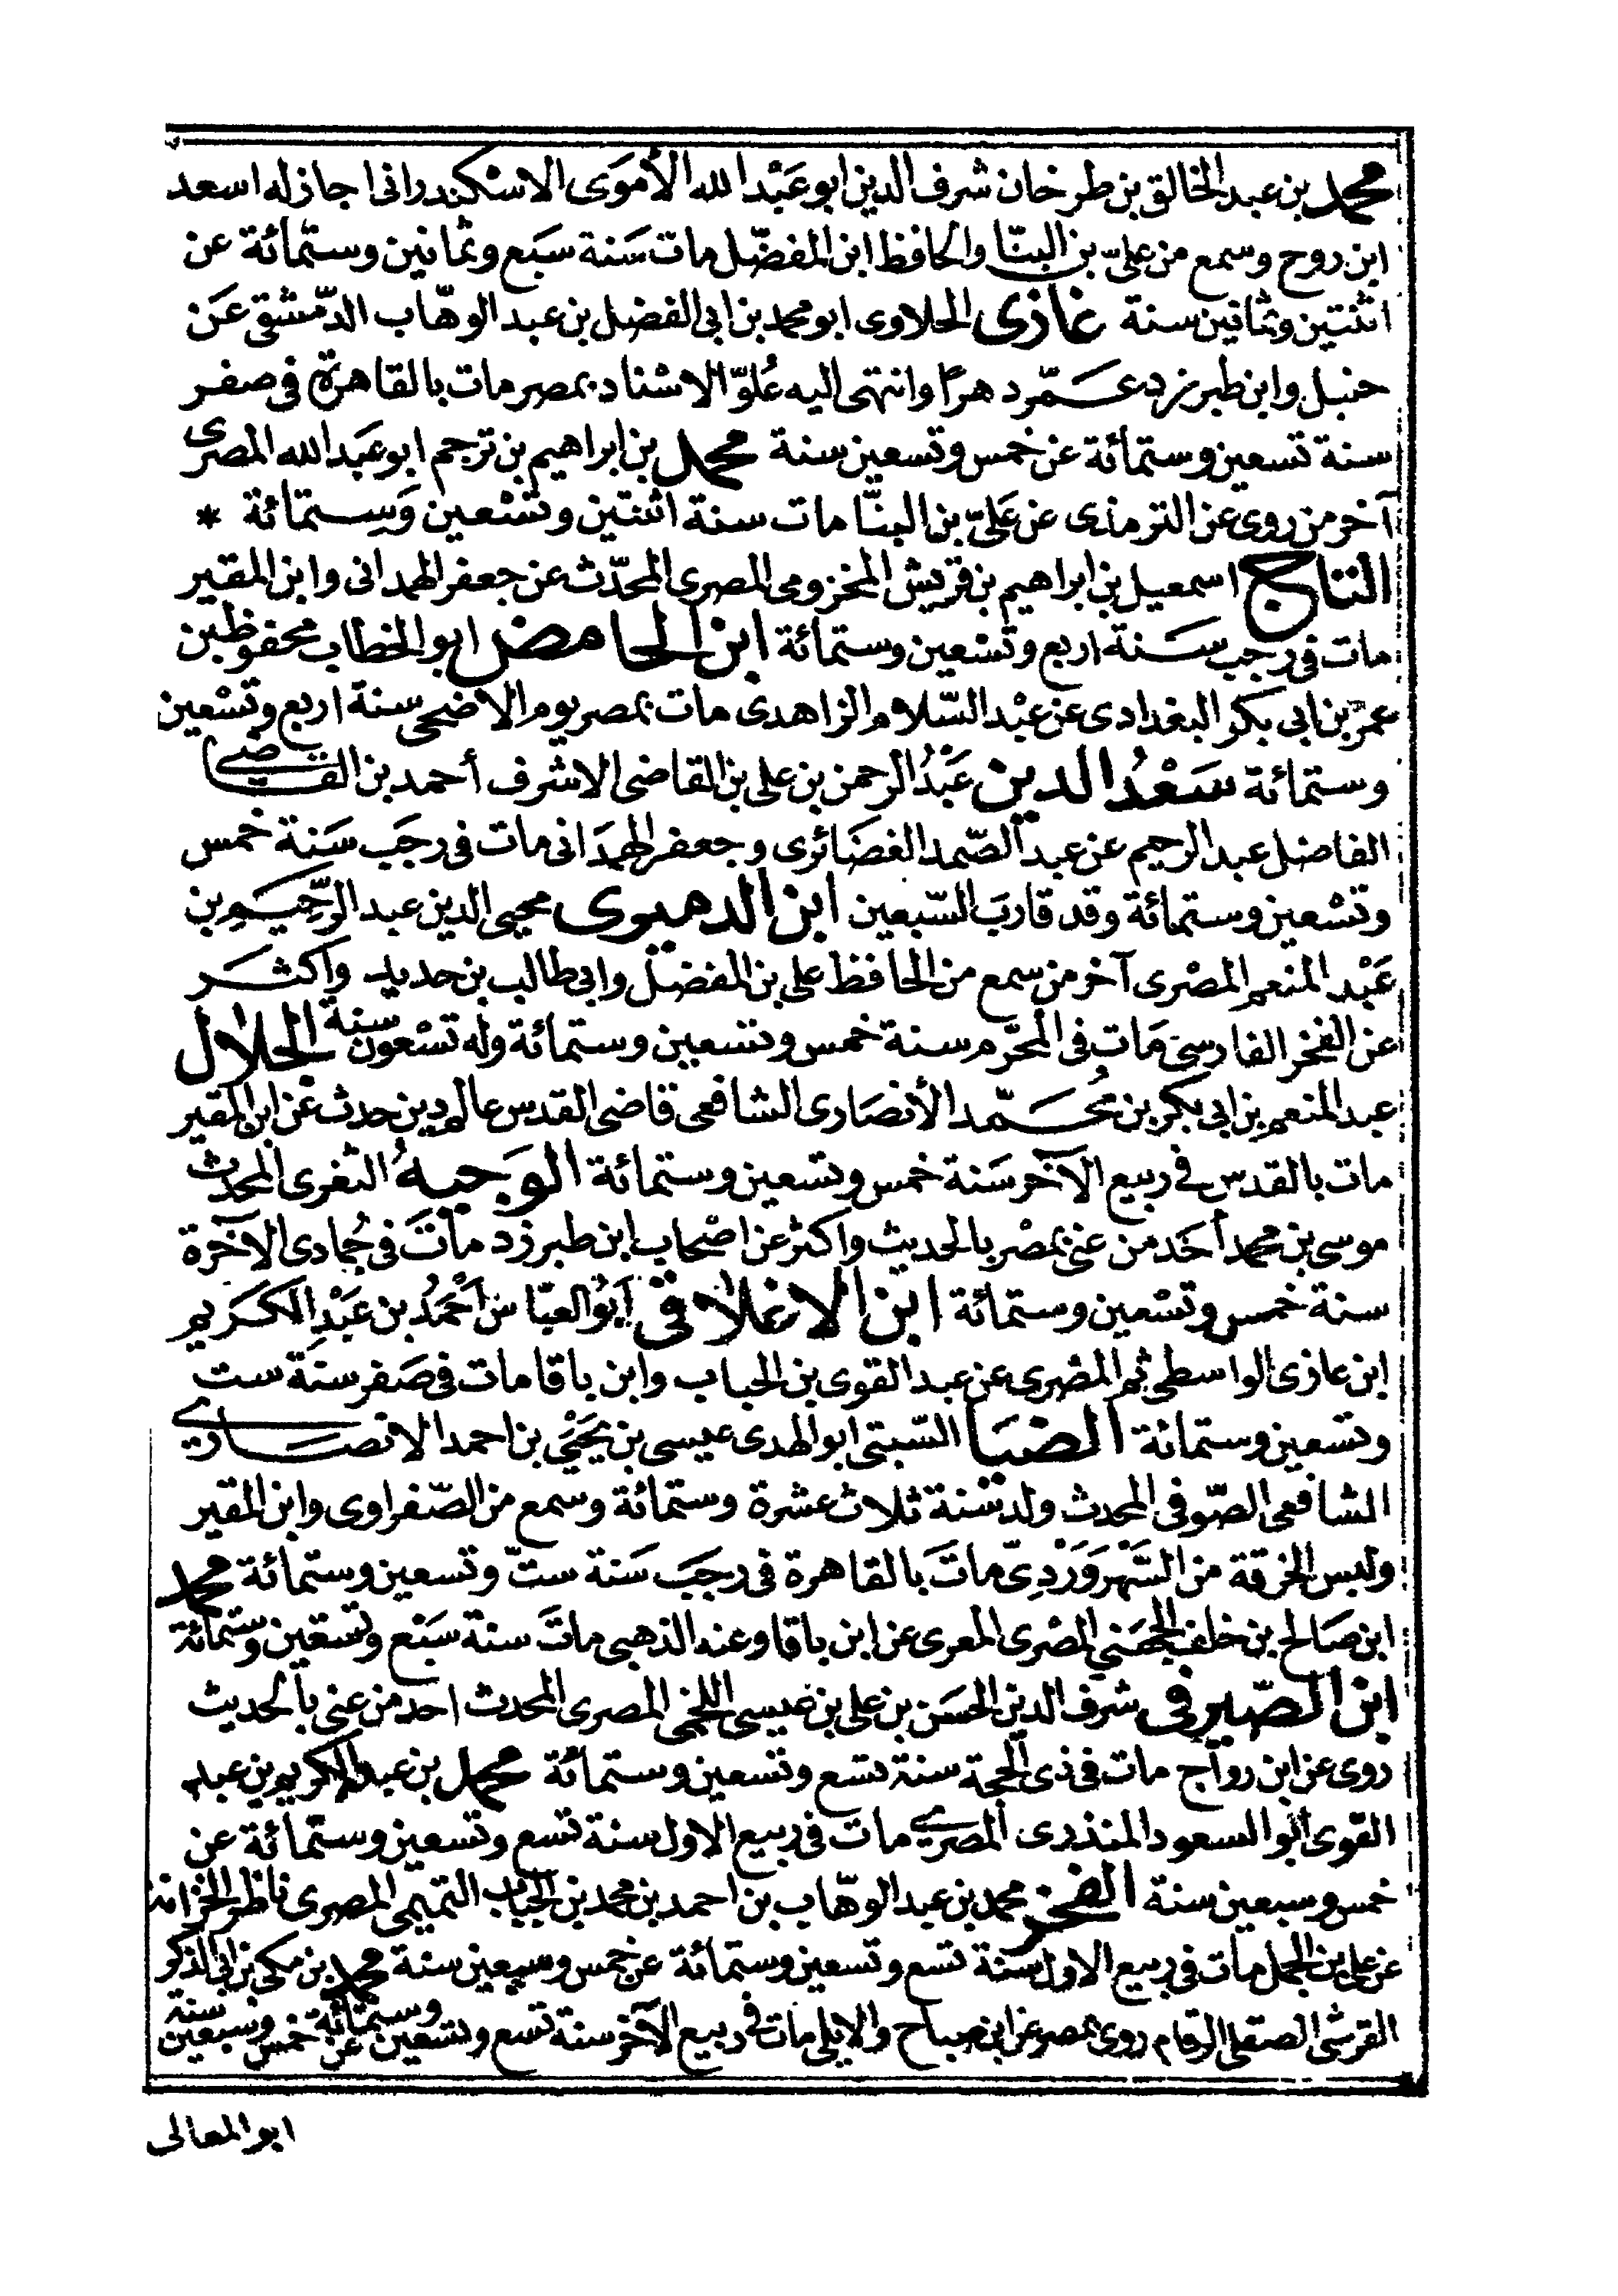 محمد بن عبد الخالق بن طرخان شرف الدين ابو عَبْد الله الأموَى الاسْكندرانى اجاز له اسعد
ابن روح وسمع من علىّ بن البنّا والحافظ ابن المفضّل مات سَنة سَبَع وثمانين وستّمائة عن
اثنتين وثمانين سنة غازى الحلاوى ابو محمد بن ابى الفضل بن عبد الوهّاب الدّمشقى عَن
حنبل وابن طبرزد عَمّر دهرًا وانتهى اليه عُلوّ الاسْناد بمصر مات بالقاهرة فى صفر
سنة تسعين وستمائة عن خمس وتسعين سنة محمد بن ابراهيم بن ترجم ابو عَبَد الله المصرى
آخر من روى عن الترمذى عن عَلىّ بن البنّا مات سنة اثنتين وتسْعين وَستمائة *
التاج اسمعيل بن ابراهيم بن قريش المخزومى المصرى المحدّث عن جعفر الهمدانى وابن المقير
مات فى رجب سَنة اربع وتسْعين وستمائة ابن الحامض ابو الخطاب محفوظ بن
عمر بن ابى بكر البغدادى عن عبْد السّلام الزاهدى مات بمصر يوم الاضحى سنة اربع وتسْعين
وستمائة سَعْدُ الدين عَبْدُ الرحمن بن على بن القاضى الاشرف أحمد بن القاضى
الفاضل عبد الرحيم عن عبد الصّمد الغضَائرى وجعفر الهمدَانى مات فى رجَب سَنة خمس
وتسْعين وستمائة وقد قاربَ السّبعين ابن الدميرى محيى الدين عبد الرّحيم بن
عَبْد المنعم المصْرى آخر من سمع من الحافظ على بن المفضل وابى طالب بن حديد واكثر
عن الفخر الفارسىّ مَات فى المحَرّم سنة خمس وتسعين وستمائة وله تسْعون سنة الجلال
عبد المنعم بن ابى بكر بن مُحَمّد الأنصَارى الشافعى قاضى القدس عالم دين حدث عَن ابن المقير
مات بالقدس فى ربيع الآخر سَنة خمس وتسعين وستمائة الوَجيهُ الثغرى المحدث
موسى بن محمد أحَد من عنى بمصْر بالحديث واكثر عن اصْحاب ابن طبرزد ماتَ فى جُمادى الآخرة
سنة خمس وتسْعين وستمائة ابن الاغلاقى أبوُ العبّاس أحْمَدُ بن عَبْدِ الكَريم
ابن غازى الواسطى ثم المصْرى عن عبد القوى بن الحباب وابن باقا مات فى صَفر سنة ست
وتسعين وستمائة الضيَا السّبتى ابو الهدى عيسى بن يَحْيَى بن احمد الانصَارى
الشافعى الصّوفى المحدث ولد سَنة ثلاث عشرة وستمائة وسمع من الصّفراوى وابن المقير
ولبس الخرقة من السّهْرَوَرْدىّ ماتَ بالقاهرة فى رجَبَ سَنة ستّ وتسعين وستمائة محمد
ابن صَالح بن خلف الجهَنى المصْرى المعرى عن ابن باقا وعنه الذهبى ماتَ سنة سَبَع وتسعَين وستمائة
ابن الصّيرفى شرف الدين الحسَن بن على بن عيسى اللخمى المصرى المحدث احد من عنى بالحديث
روى عن ابن رواج مات فى ذى الحجة سنة تسع وتسعين وستمائة محمد بن عبد الكريم بن عبد
القوى ابو السعود المنذرى المصرى مات فى ربيع الاول سنة تسع وتسعين وستّمائة عن
خمس وسبعين سنة الفخر محمد بن عبد الوهّاب بن احمد بن محمد بن الجبَاب التميمى المصرى ناظر الخزانة
عن على بن الجمل مات فى ربيع الاول سنة تسع وتسعين وستمائة عن خمس وسبعين سنة محمد بن مكى بن ابى الذكر
القرشى الصقلى الرقام روى بمصر عن ابن صباح والابلى مات فى ربيع الآخر سنة تسع وتسعين وستمائة عن خمس وسبعين سنة
ابو المعالى